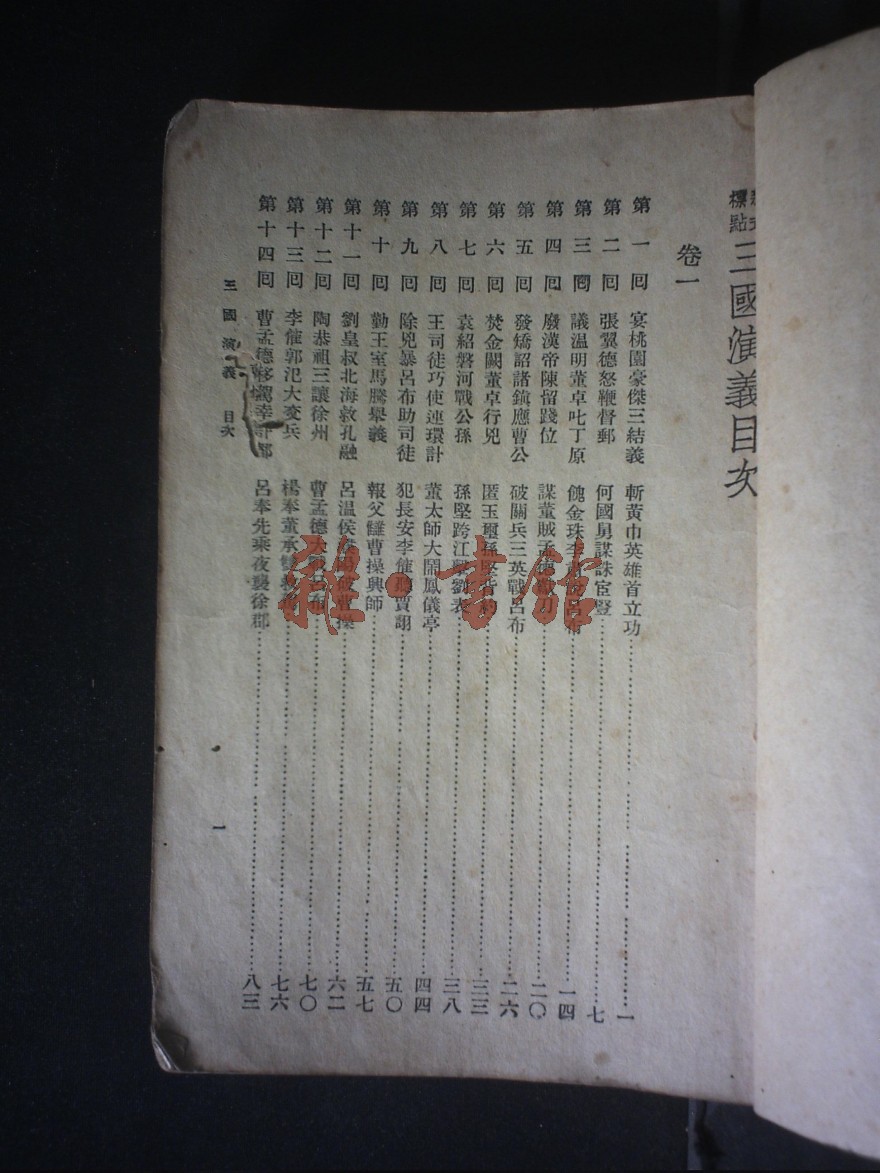 標點 三國演義目次
卷一
第一回 宴桃園豪傑三結義 斬黃巾英雄首立功 一
第二回 張翼德怒鞭督郵 何國舅謀誅宦豎 七
第三回 議温明董卓叱丁原 餽金珠李 呂布 一四
第四回 廢漢帝陳留踐位 謀董賊孟德 刀 二〇
第五回 發矯詔諸鎮應曹公 破關兵三英戰呂布 二六
第六回 焚金闕董卓行兇 匿玉璽孫堅背約 三三
第七回 袁紹磐河戰公孫 孫堅跨江擊劉表 三八
第八回 王司徒巧使連環計 董太師大鬧鳳儀亭 四四
第九回 除兇暴呂布助司徒 犯長安李傕聽賈詡 五〇
第十回 勤王室馬騰舉義 報父讎曹操興師 五七
第十一回 劉皇叔北海救孔融 呂温侯 破曹操 六二
第十二回 陶恭祖三讓徐州 曹孟德大 呂布 七〇
第十三回 李傕郭汜大交兵 楊奉董承雙救駕 七六
第十四回 曹孟德移駕幸許都 呂奉先乘夜襲徐郡 八三
三國演義 目次
一
雅·書館